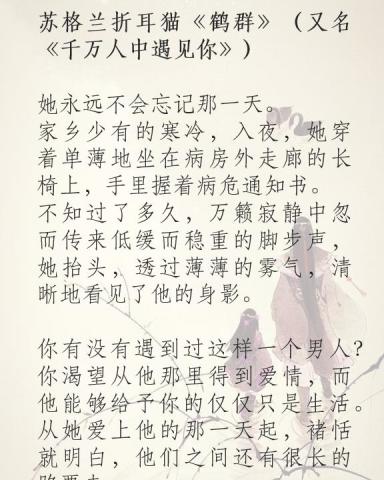 苏格兰折耳猫《鹤群》（又名
《千万人中遇见你》）
她永远不会忘记那一天。
家乡少有的寒冷，入夜，她穿
着单薄地坐在病房外走廊的长
椅上，手里握着病危通知书。
不知过了多久，万籁寂静中忽
而传来低缓而稳重的脚步声，
她抬头，透过薄薄的雾气，清
晰地看见了他的身影。
你有没有遇到过这样一个男人？
你渴望从他那里得到爱情，而
他能够给予你的仅仅只是生活。
从她爱上他的那一天起，褚恬
就明白，他们之间还有很长的
路要走